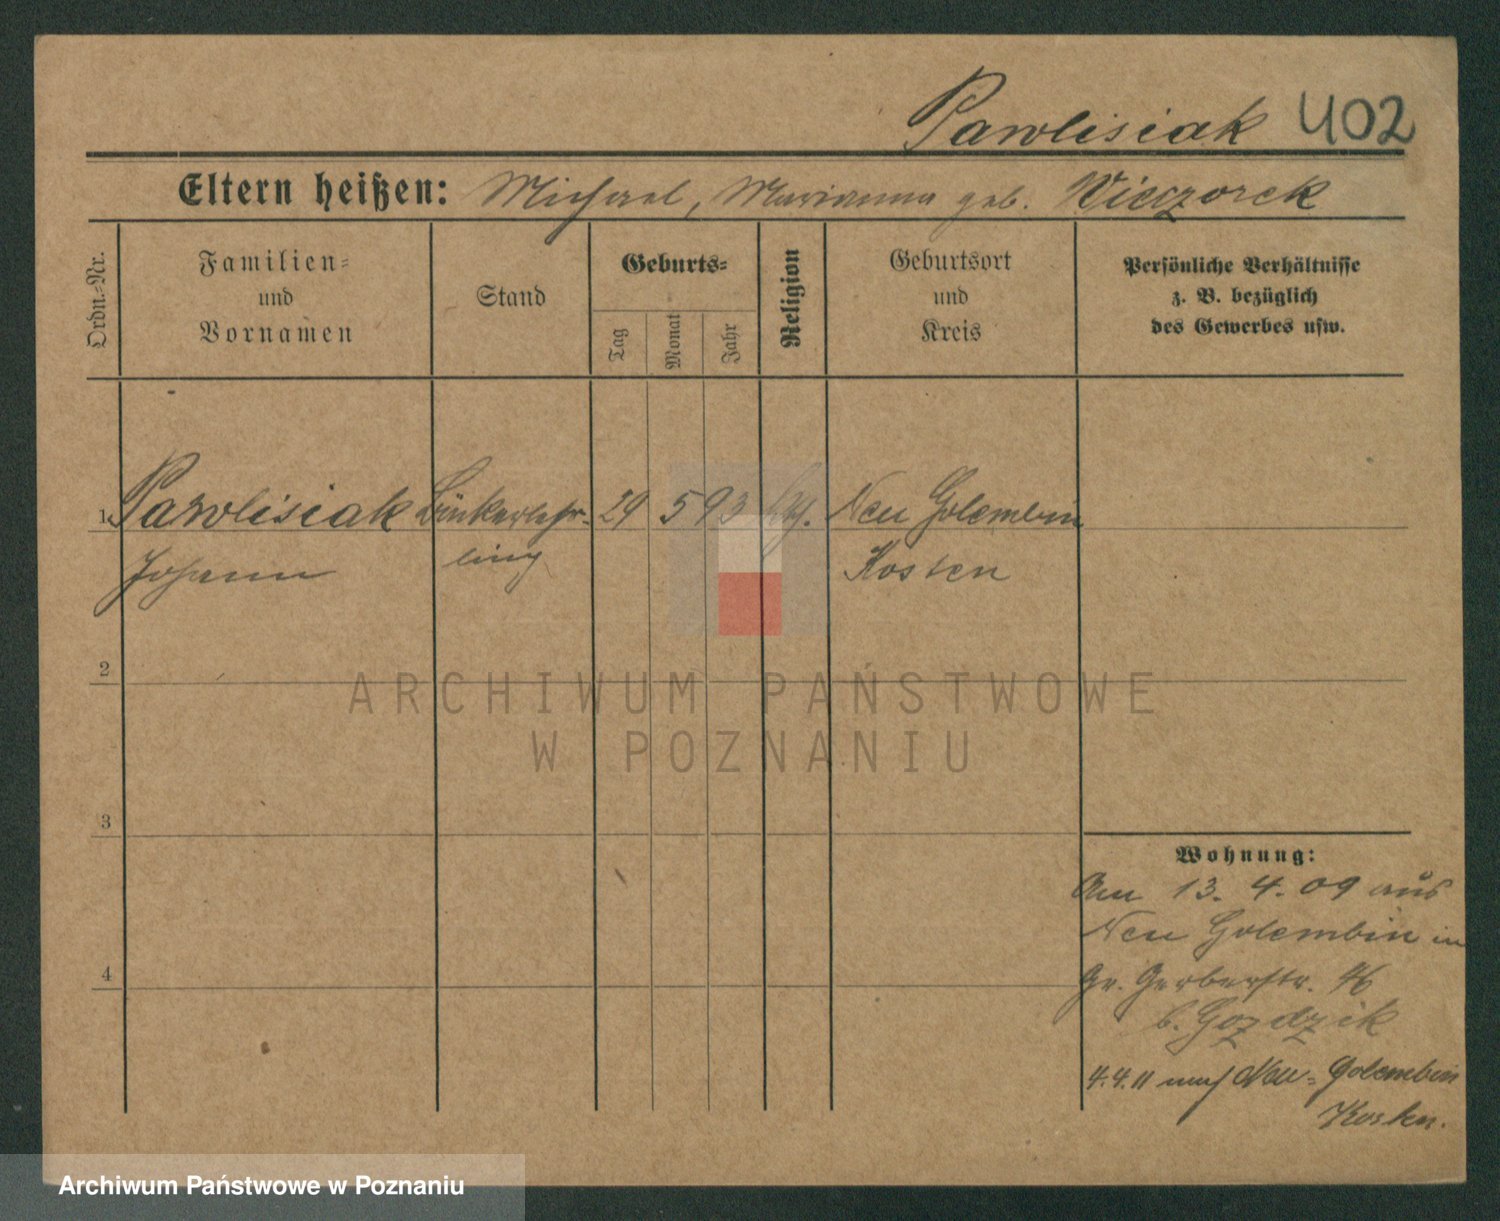 Pawlisiak 402
Eltern heißen: Michael, Marianna geb. Wieczorek
Ordn.-Nr.
Familien-
und
Vornamen
Stand
Geburts-
Tag
Monat
Jahr
Religion
Geburtsort
und
Kreis
Persönliche Verhältnisse
z. B. bezüglich
des Gewerbes usw.
1 Pawlisiak Bäckerlehr- 29 5 93 Neu Golembin
Johann ling Kosten
2
3
4
Wohnung:
Am 13. 4. 09 aus
Neu Golembin in
Gr. Gerberstr. 46
b. Gozdzik
4.4.11 nach Neu-Golembin
Kosten.
ARCHIWUM PAŃSTWOWE
W POZNANIU
Archiwum Państwowe w Poznaniu